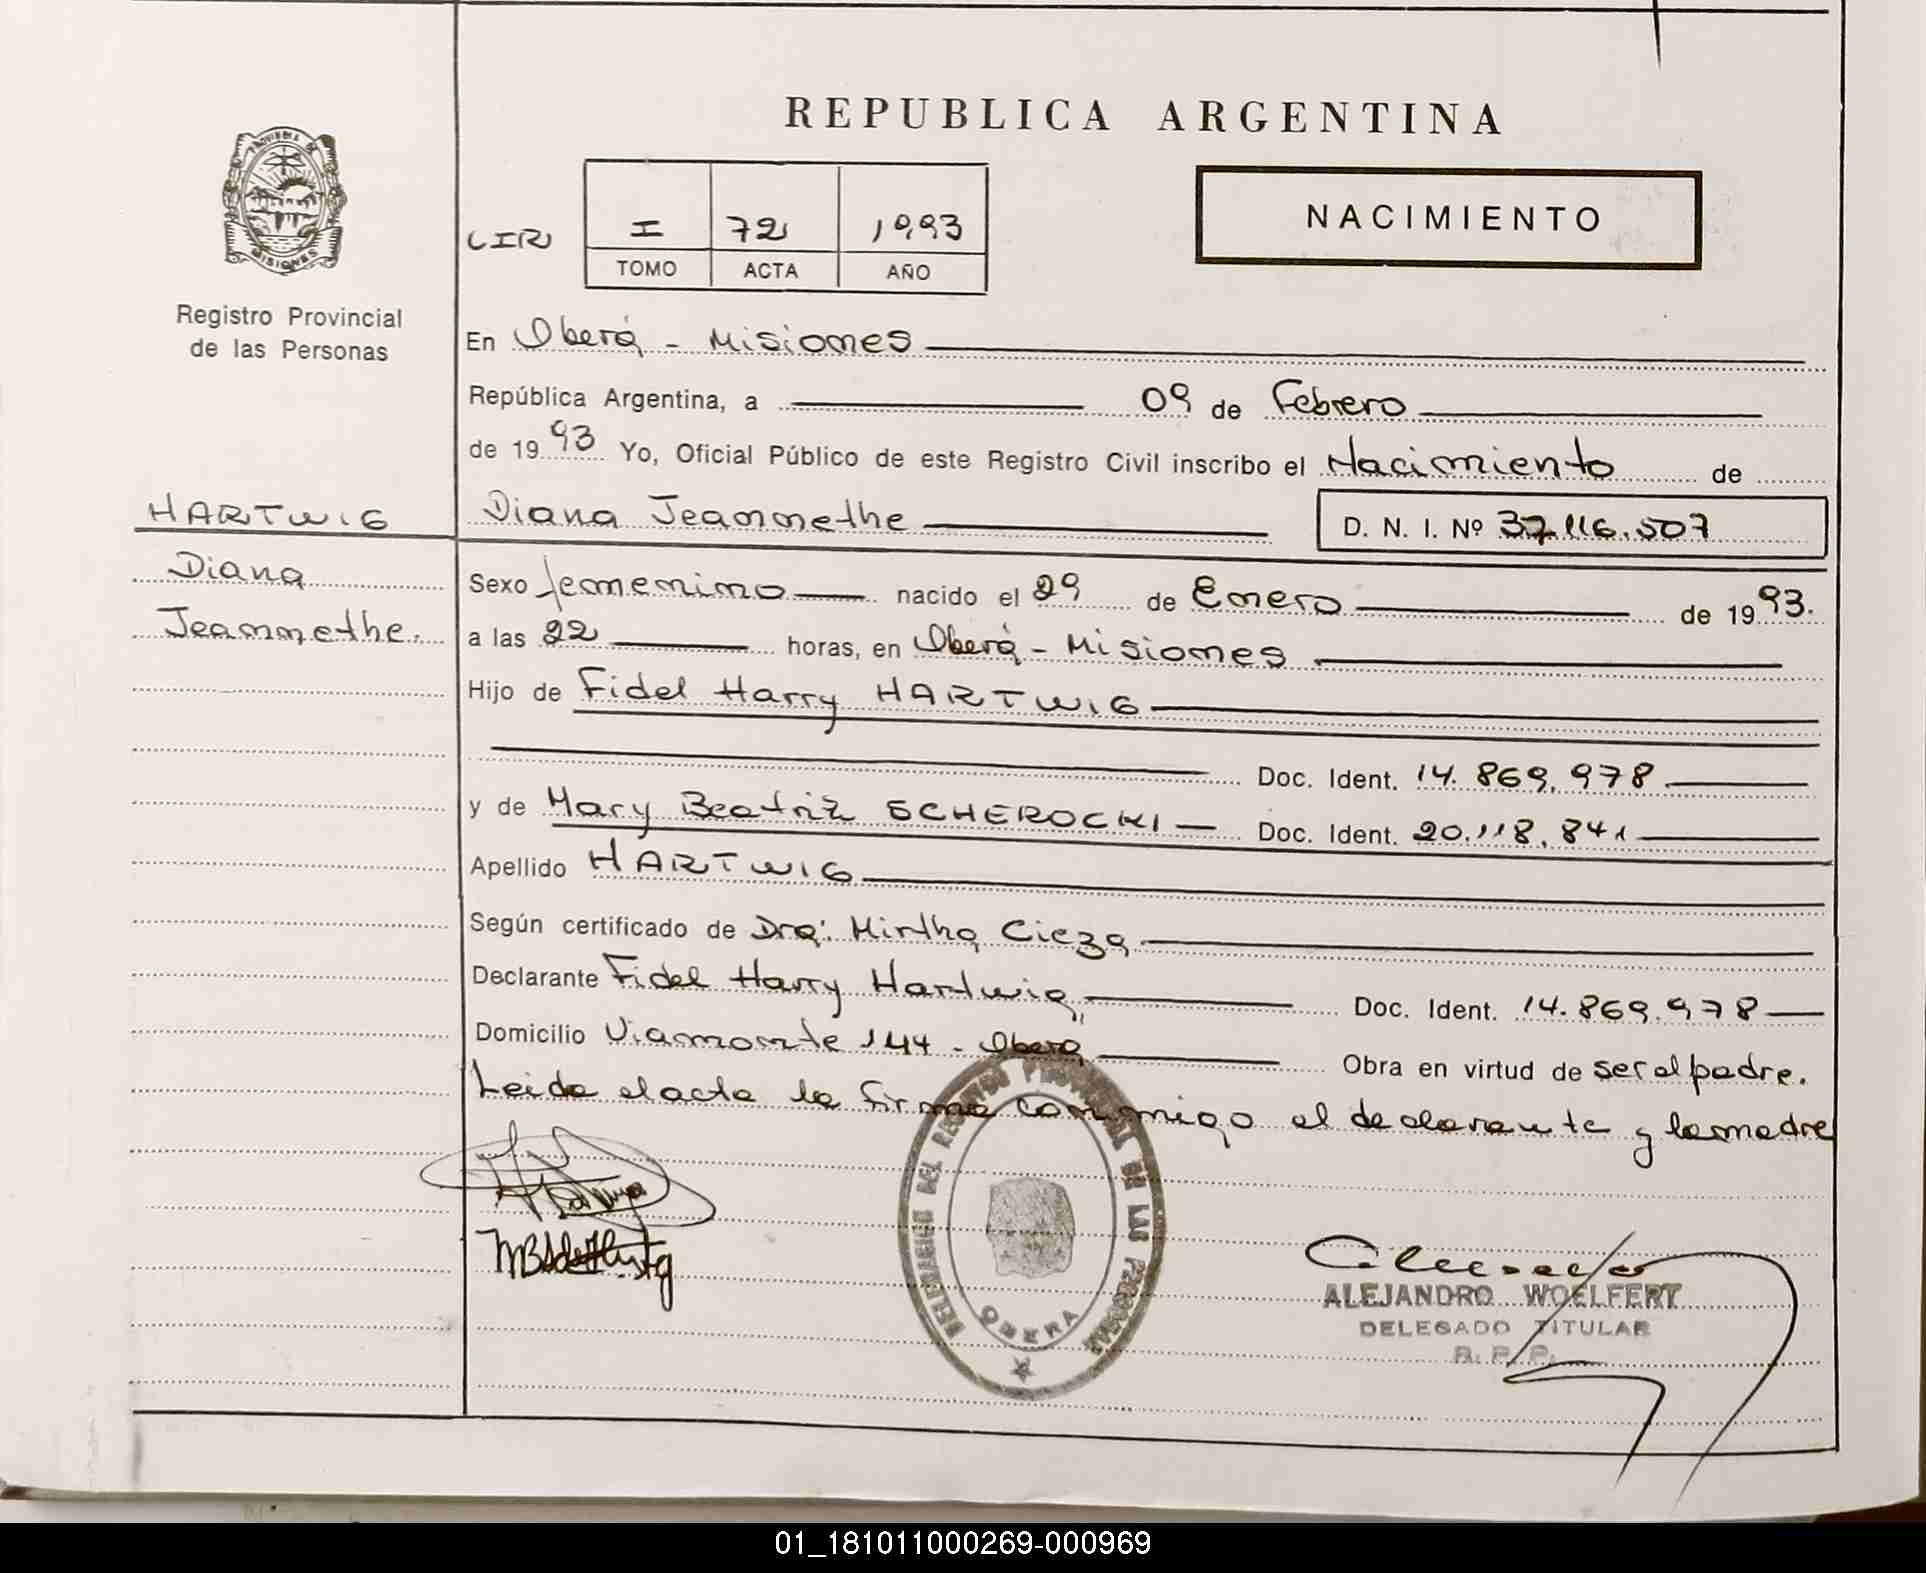 REPUBLICA ARGENTINA
PROVINCIA DE
MISIONES
Registro Provincial
de las Personas
CIR
I 72 1993
TOMO ACTA AÑO
NACIMIENTO
En Oberá - Misiones
República Argentina, a 09 de Febrero
de 1993 Yo, Oficial Público de este Registro Civil inscribo el Nacimiento de
HARTWIG
Diana
Jeannethe.
Diana Jeannethe
D. N. I. Nº 37.116.507
Sexo femenino nacido el 29 de Enero de 1993.
a las 22 horas, en Oberá - Misiones
Hijo de Fidel Harry HARTWIG
Doc. Ident. 14.869.978
y de Mary Beatriz SCHEROCKI Doc. Ident. 20.118.841
Apellido HARTWIG
Según certificado de Dra: Mirtha Cieza
Declarante Fidel Harry Hartwig Doc. Ident. 14.869.978
Domicilio Viamonte 144 - Oberá Obra en virtud de ser el padre.
Leida el acta la firma conmigo el declarante y la madre
DELEGACIÓN DEL REGISTRO PROVINCIAL DE LAS PERSONAS
OBERA
ALEJANDRO WOELFERT
DELEGADO TITULAR
R. P. P.
01_181011000269-000969